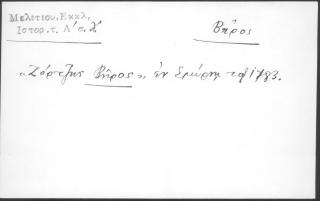 Μελετίου, Εκκλ,
Ιστορ. τ. Α΄ σ. λ΄
Βῆρος
«Ζόρτζης Βῆρος», ἐν Σμύρνῃ τῷ 1783.